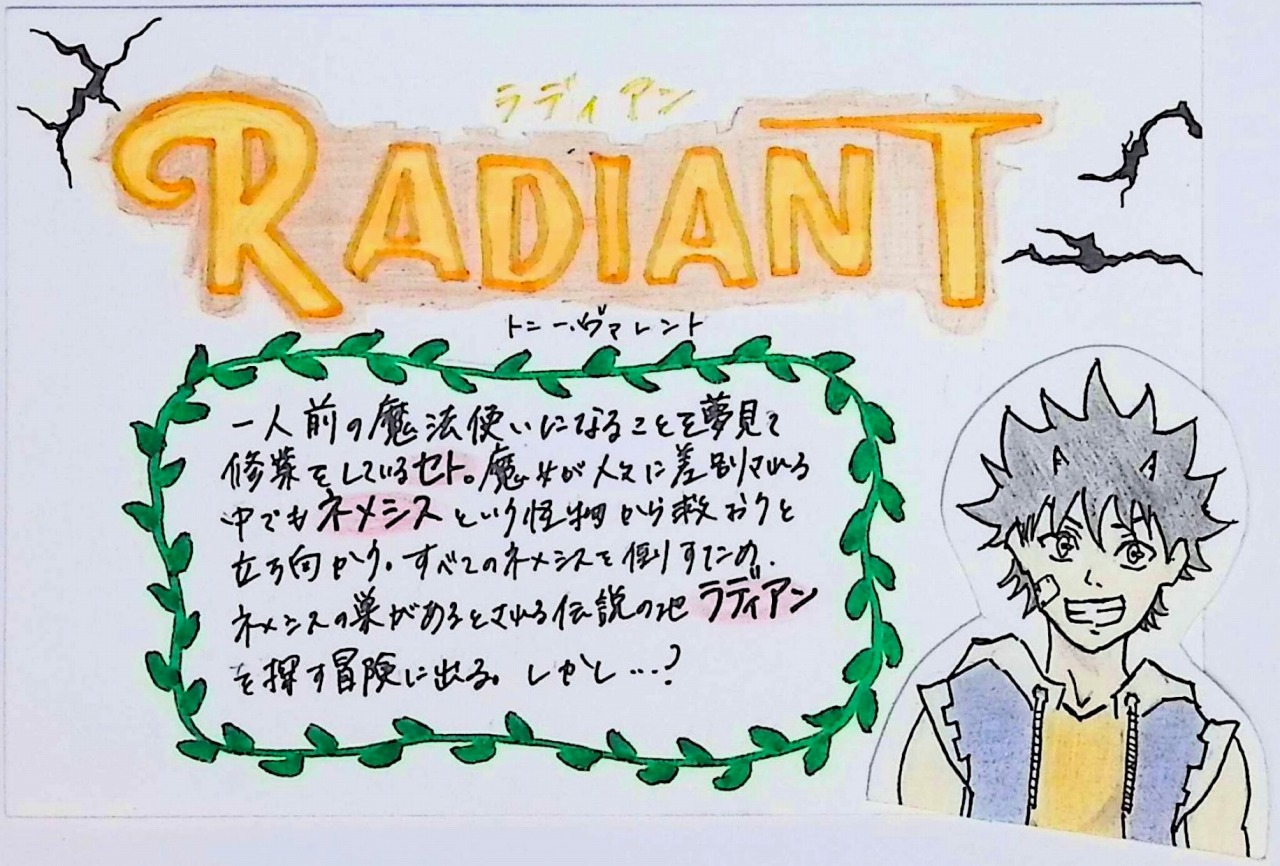 ラディアン
RADIANT
トニー・ヴァレント
一人前の魔法使いになることを夢見て
修業をしているセト。魔女が人々に差別される
中でもネメシスという怪物から救おうと
立ち向かう。すべてのネメシスを倒すため、
ネメシスの巣があるとされる伝説の地ラディアン
を探す冒険に出る。しかし…?